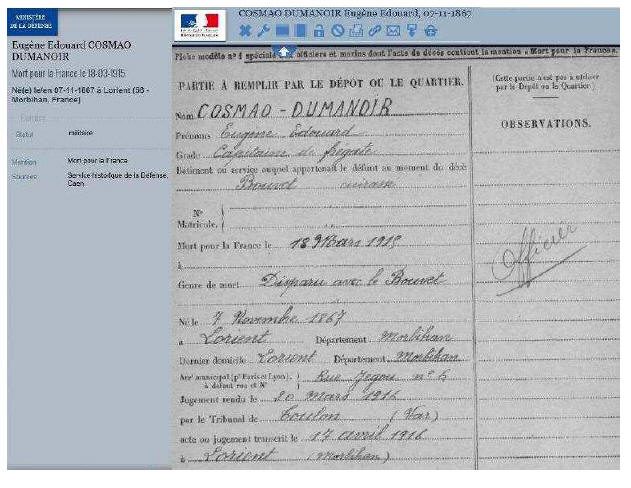 MINISTÈRE
DE LA DÉFENSE
Eugène Edouard COSMAO
DUMANOIR
Mort pour la France le 18-03-1915
Né(e) le/en 07-11-1867 à Lorient (56 -
Morbihan, France)
Statut militaire
Mention Mort pour la France
Sources Service historique de la Défense,
Caen
COSMAO DUMANOIR Eugène Edouard, 07-11-1867
Fiche modèle nº 1 spéciale aux officiers et marins dont l'acte de décès contient la mention « Mort pour la France.
PARTIE À REMPLIR PAR LE DÉPÔT OU LE QUARTIER.
Nom COSMAO - DUMANOIR
Prénoms Eugène Edouard
Grade Capitaine de frégate
Bâtiment ou service auquel appartenait le défunt au moment du décès
Bouvet cuirassé
Nº
Matricule.
Mort pour la France le 18 Mars 1915
à
Genre de mort Disparu avec le Bouvet
Né le 7 Novembre 1867
à Lorient Département Morbihan
Dernier domicile Lorient Département Morbihan
Arrᵗ municipal (pʳ Paris et Lyon), à défaut rue et Nº Rue Jegou nº 5
Jugement rendu le 20 Mars 1916
par le Tribunal de Toulon (Var)
acte ou jugement transcrit le 17 avril 1916
à Lorient (Morbihan)
(Cette partie n'est pas à utiliser
par le Dépôt ou le Quartier)
OBSERVATIONS.
Officier